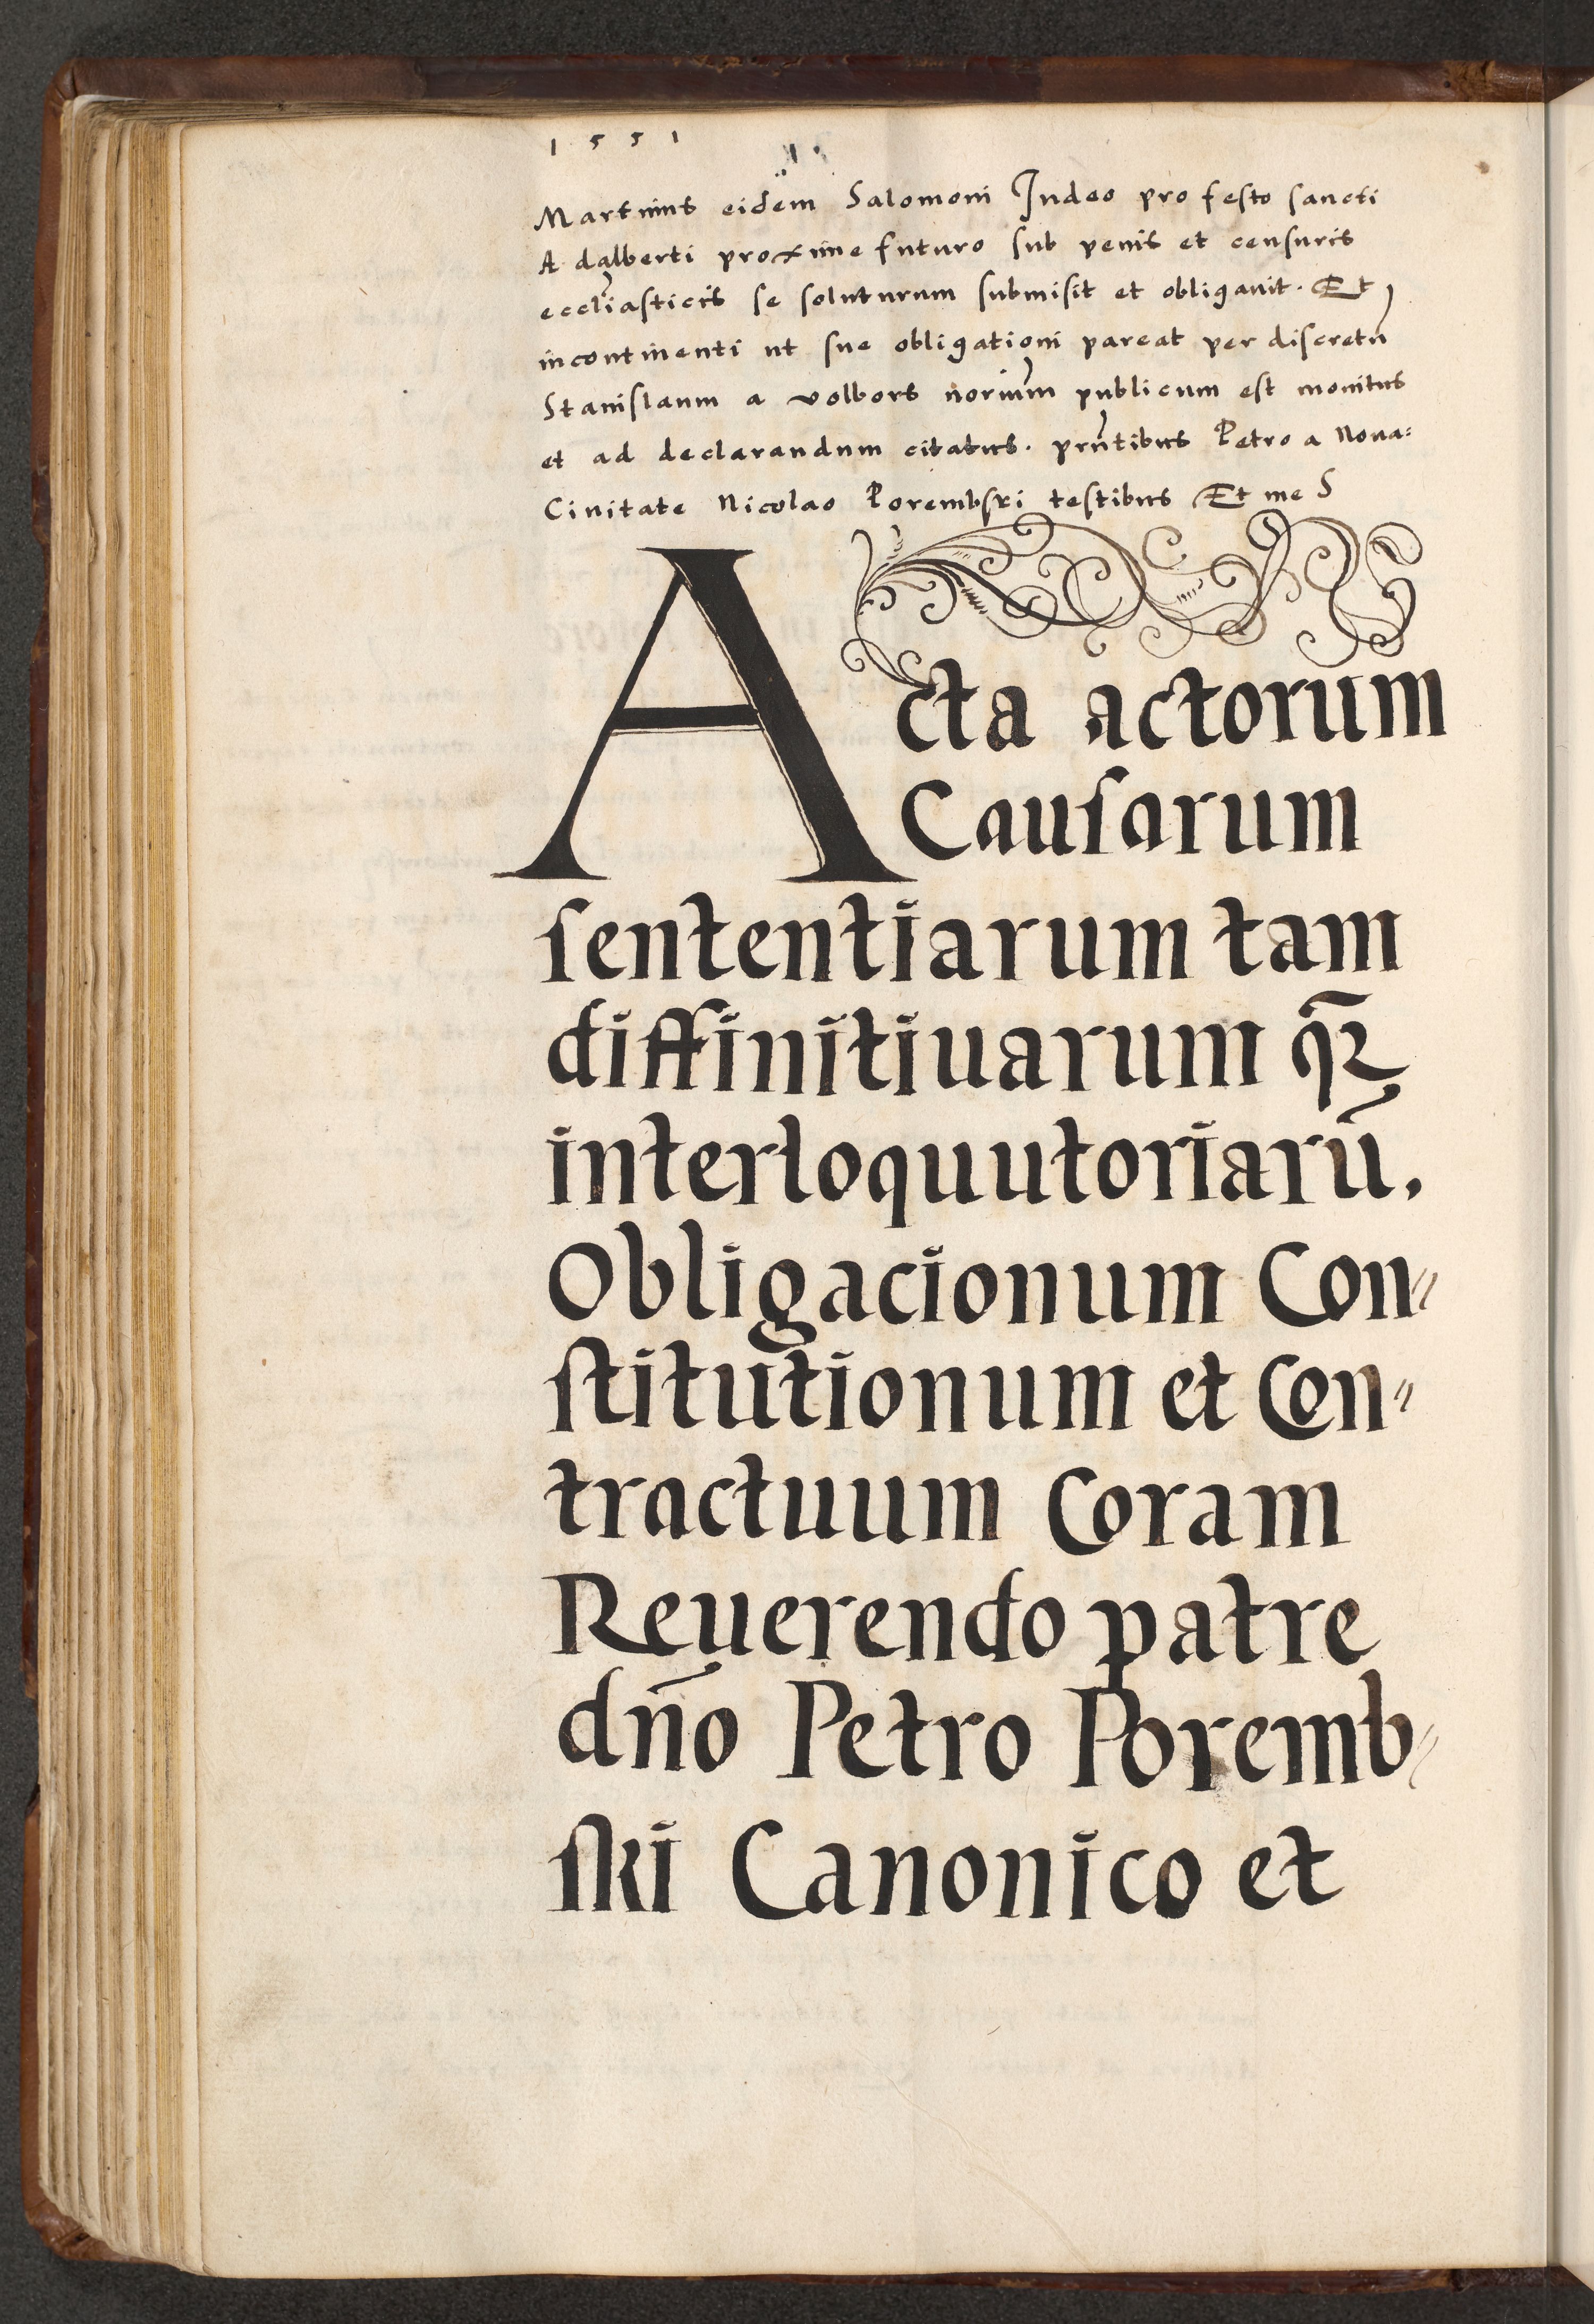 1551
Martinus eidem Salomoni Iudeo pro festo sancti
Adalberti proxime futuro sub penis et censuris
eccl̃iasticis se soluturum submisit et obligauit. Et
incontinenti ut sue obligationi pareat per discretũ
Stanislaum a volbors norium̃ publicum est monitus
et ad declarandum citatus. prñtibus Petro a Noua:
Ciuitate Nicolao Porembski testibus Et me S
Acta actorum
Causarum
sententiarum tam
diffinitiuarum q̃ꝛ
interloquutoriarũ.
Obligacionum Con〃
stitutionum et Con〃
tractuum Coram
Reuerendo patre
dño Petro Poremb〃
ski Canonico et